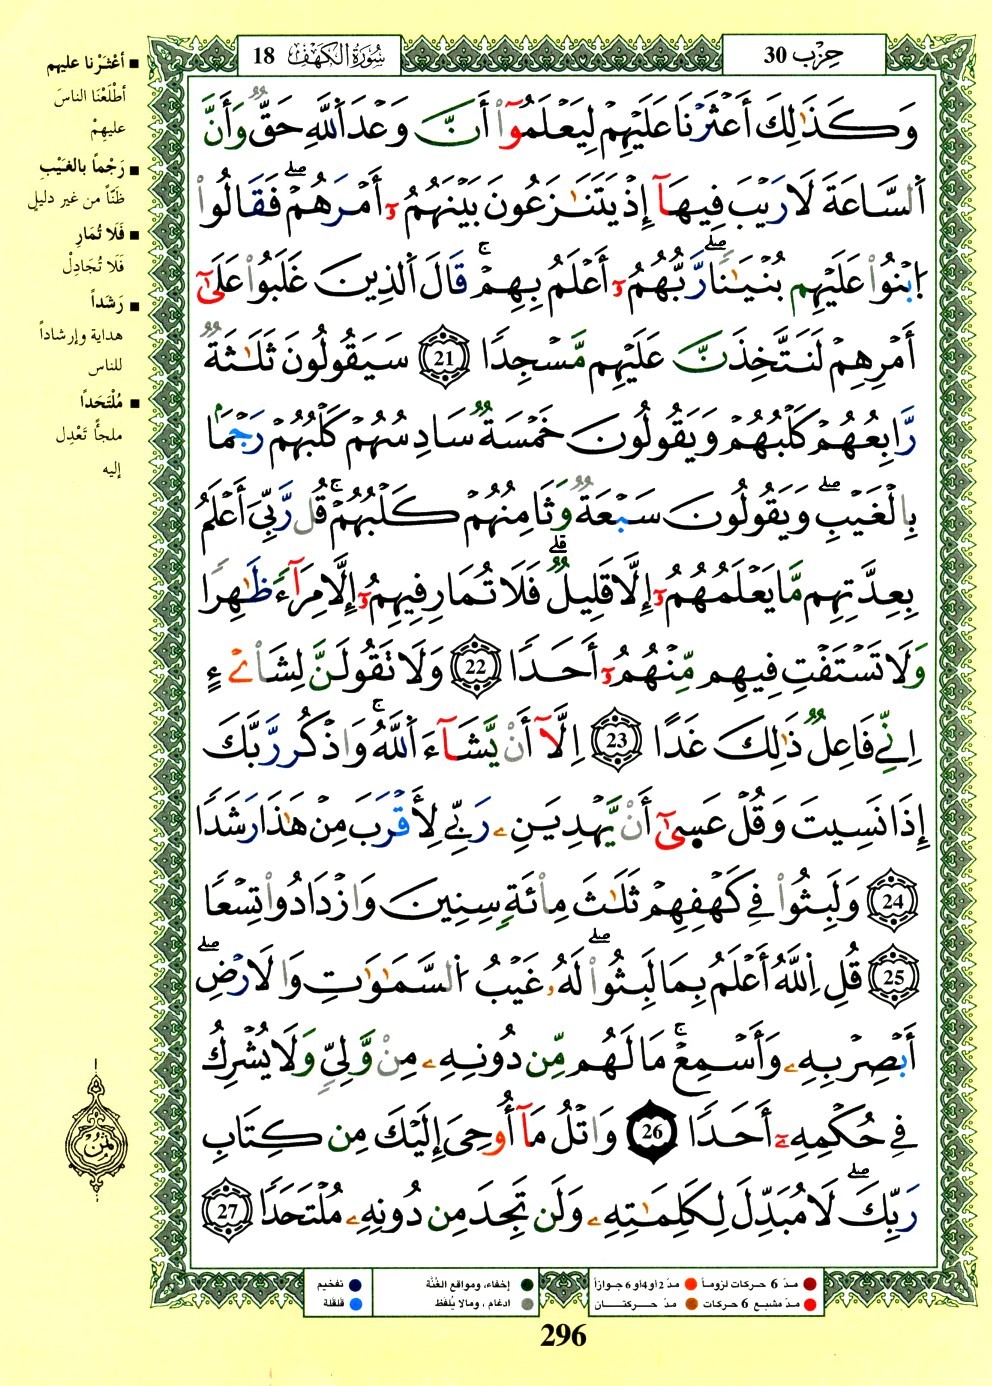 حِزْب 30
سُورَةُ الكَهْفِ 18
وَكَذَٰلِكَ أَعْثَرْنَا عَلَيْهِمْ لِيَعْلَمُوٓا۟ أَنَّ وَعْدَ اَللَّهِ حَقٌّ وَأَنَّ
اَلسَّاعَةَ لَا رَيْبَ فِيهَآ إِذْ يَتَنَٰزَعُونَ بَيْنَهُمُۥٓ أَمْرَهُمْۖ فَقَالُوا۟
اُبْنُوا۟ عَلَيْهِم بُنْيَٰنًاۖ رَّبُّهُمُۥٓ أَعْلَمُ بِهِمْۚ قَالَ اَلذِينَ غَلَبُوا۟ عَلَىٰٓ
أَمْرِهِمْ لَنَتَّخِذَنَّ عَلَيْهِم مَّسْجِدًا 21 سَيَقُولُونَ ثَلَٰثَةٌ
رَّابِعُهُمْ كَلْبُهُمْ وَيَقُولُونَ خَمْسَةٌ سَادِسُهُمْ كَلْبُهُمْ رَجْمًۢا
بِالْغَيْبِۖ وَيَقُولُونَ سَبْعَةٌ وَثَامِنُهُمْ كَلْبُهُمْۚ قُل رَّبِّيَ أَعْلَمُ
بِعِدَّتِهِم مَّا يَعْلَمُهُمُۥٓ إِلَّا قَلِيلٌۗ فَلَا تُمَارِ فِيهِمُۥٓ إِلَّا مِرَآءً ظَٰهِرًا
وَلَا تَسْتَفْتِ فِيهِم مِّنْهُمُۥٓ أَحَدًا 22 وَلَا تَقُولَنَّ لِشَا۟يْءٍ
اِنِّے فَاعِلٌ ذَٰلِكَ غَدًا 23 اِلَّآ أَنْ يَّشَآءَ اَللَّهُۚ وَاذْكُر رَّبَّكَ
إِذَا نَسِيتَ وَقُلْ عَسَىٰٓ أَنْ يَّهْدِيَنِۦ رَبِّے لِأَقْرَبَ مِنْ هَٰذَا رَشَدًا
24 وَلَبِثُوا۟ فِے كَهْفِهِمْ ثَلَٰثَ مِا۟ئَةٍ سِنِينَ وَازْدَادُوا۟ تِسْعًا
25 قُلِ اِللَّهُ أَعْلَمُ بِمَا لَبِثُوا۟ۖ لَهُۥ غَيْبُ اُلسَّمَٰوَٰتِ وَالَارْضِۖ
أَبْصِرْ بِهِۦ وَأَسْمِعْۚ مَا لَهُم مِّن دُونِهِۦ مِنْ وَّلِيٍّ وَلَا يُشْرِكُ
فِے حُكْمِهِۦٓ أَحَدًا 26 وَاتْلُ مَآ أُوحِيَ إِلَيْكَ مِن كِتَابِ
رَبِّكَۖ لَا مُبَدِّلَ لِكَلِمَٰتِهِۦ وَلَن تَجِدَ مِن دُونِهِۦ مُلْتَحَدًا 27
■ أعْثَرْنا عليهم
أطْلَعْنَا الناسَ
عليهِمْ
■ رَجْماً بالغَيْبِ
ظنّاً من غير دليلٍ
■ فَلا تُمَارِ
فَلَا تُجَادِلْ
■ رَشَداً
هداية وإرشاداً
للناس
■ مُلْتَحَدًا
ملجأً تَعْدِل
إليه
مدّ 6 حركات لزوماً
مدّ 2 أو 4 أو 6 جوازاً
إخفاء، ومواقع الغُنَّة
تفخيم
مدّ مشبع 6 حركات
مدّ حركتان
ادغام ، ومالا يُلفظ
قلقلة
296